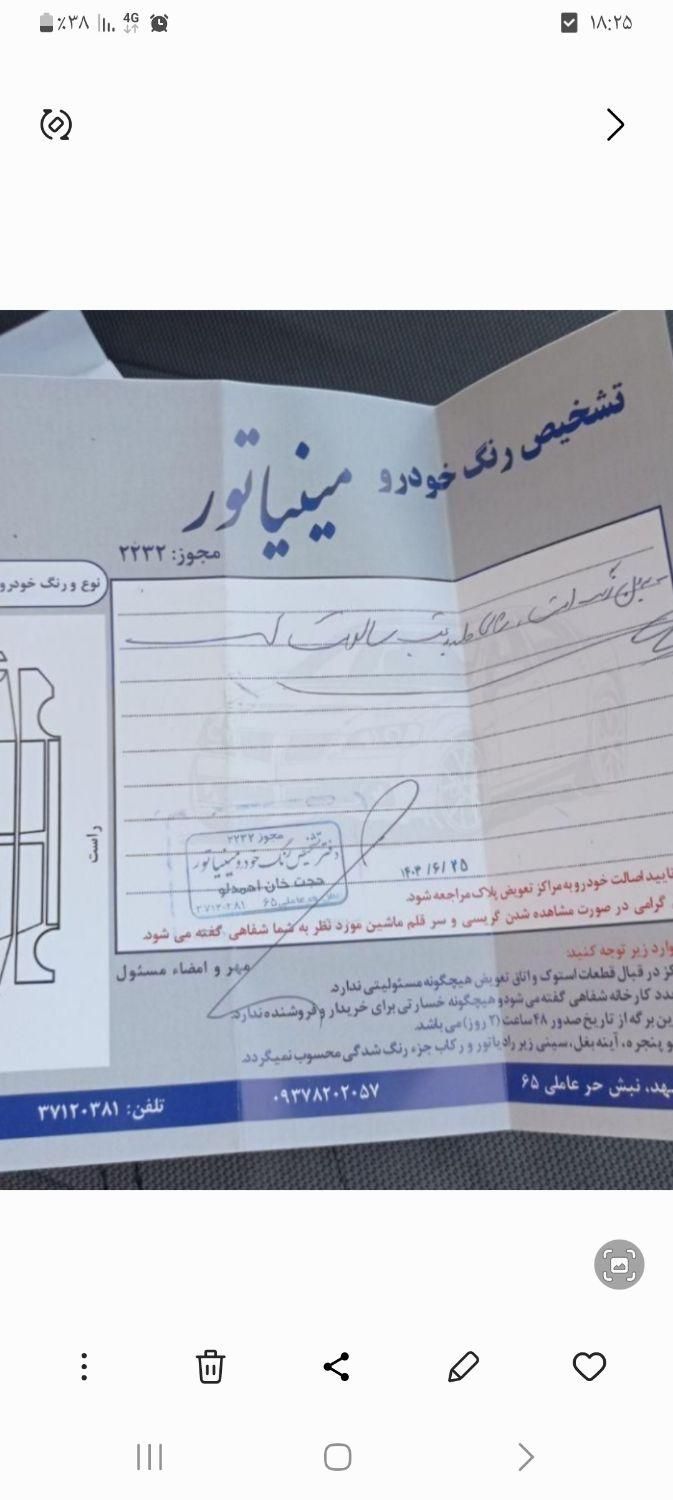 ٪۳۸ 4G
۱۸:۲۵
تشخیص رنگ خودرو مینیاتور
مجوز: ۲۲۳۲
نوع و رنگ خودرو
راست
مجوز ۲۲۳۲
دفتر تشخیص رنگ خودرو مینیاتور
حجت خان احمدلو
حر عاملی ۶۵
۱۴۰۳/۶/۲۵
تایید اصالت خودرو به مراکز تعویض پلاک مراجعه شود.
گرامی در صورت مشاهده شدن گریسی و سر قلم ماشین مورد نظر به شما شفاهی گفته می شود.
مهر و امضاء مسئول
وارد زیر توجه کنید:
کز در قبال قطعات استوک و اتاق تعویض هیچگونه مسئولیتی ندارد.
دد کارخانه شفاهی گفته می شود و هیچگونه خسارتی برای خریدار و فروشنده ندارد.
ین برگه از تاریخ صدور ۴۸ ساعت (۲ روز) می باشد.
و پنجره، آینه بغل، سینی زیر رادیاتور و رکاب جزء رنگ شدگی محسوب نمیگردد.
هد، نبش حر عاملی ۶۵
۰۹۳۷۸۲۰۲۰۵۷
تلفن: ۳۷۱۲۰۳۸۱